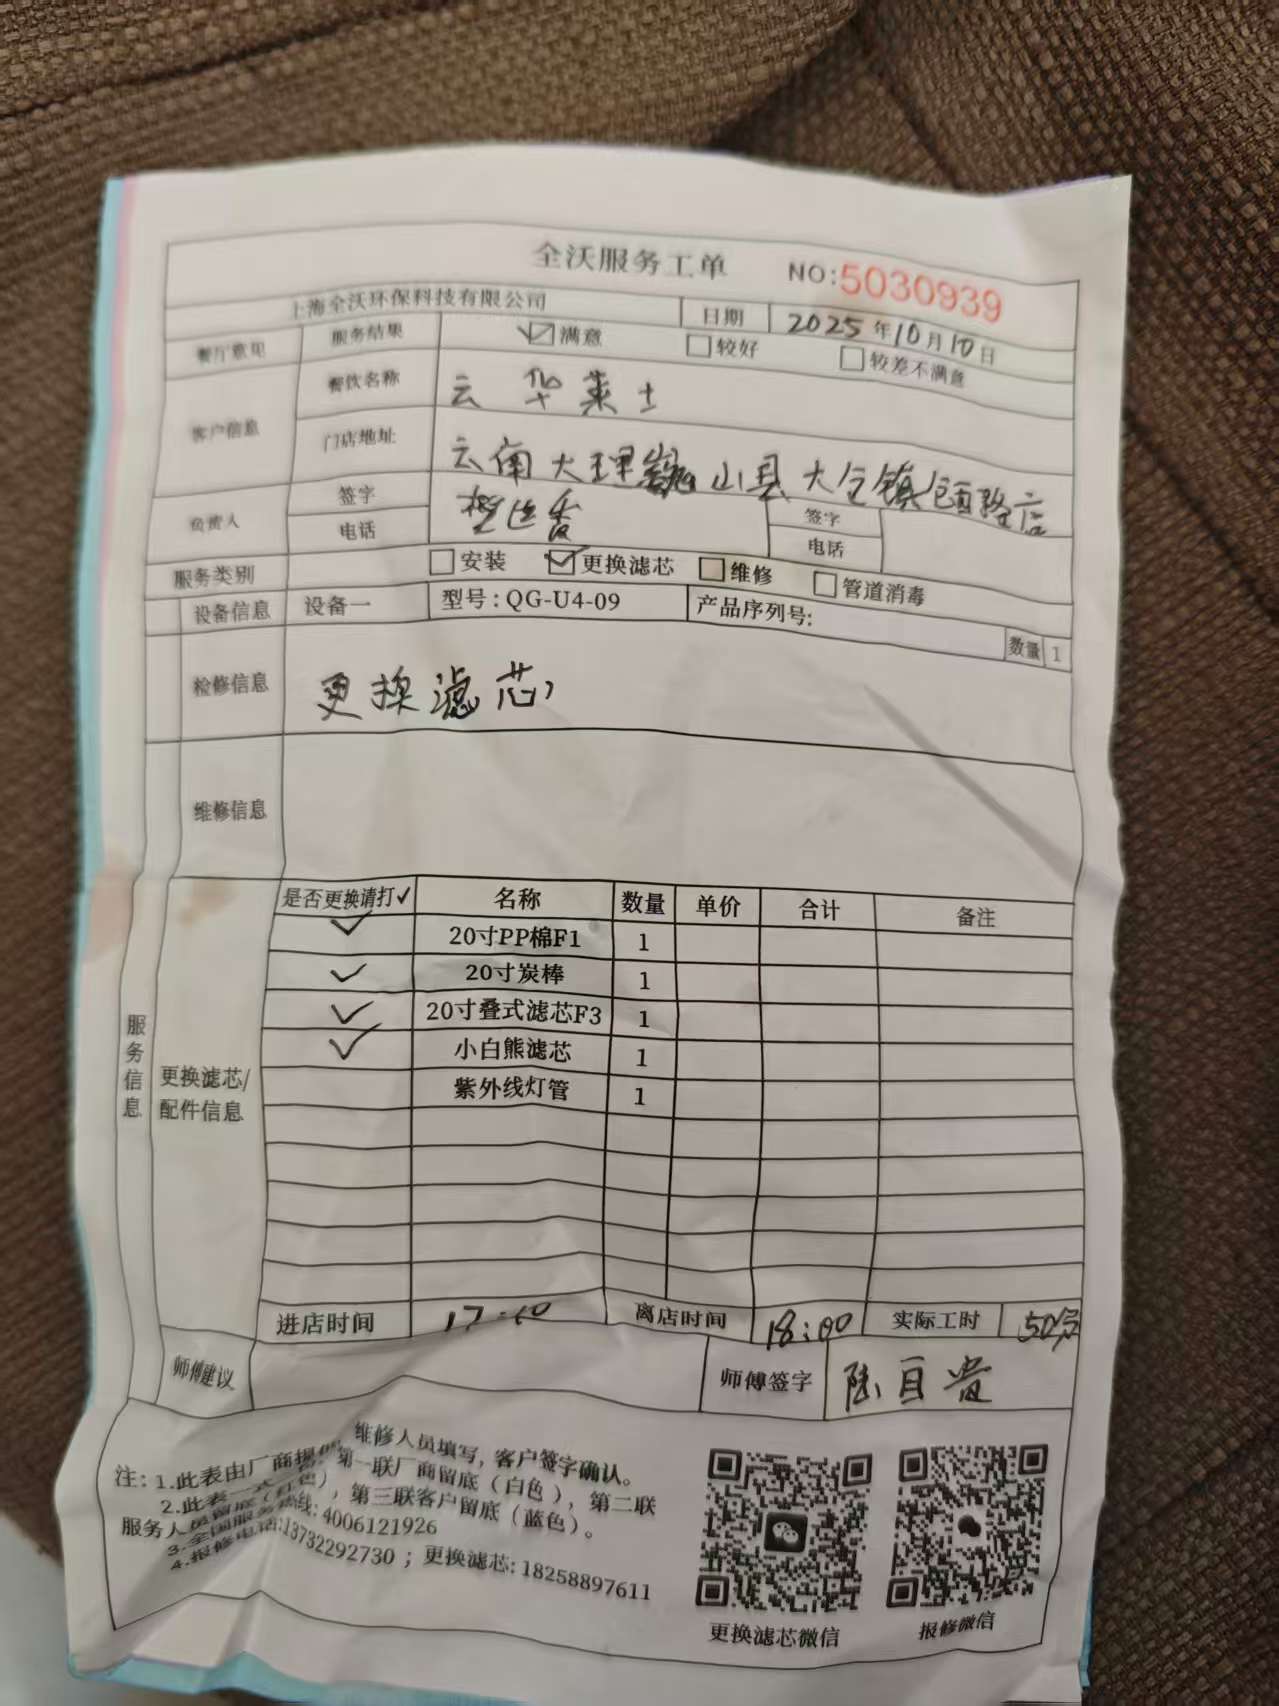 全沃服务工单 NO:5030939
上海全沃环保科技有限公司 日期 2025年10月10日
餐厅意见 服务结果 ☑满意 □较好 □较差不满意
客户信息 餐饮名称 云 华莱士
门店地址 云南大理巍山县大仓镇 路店
负责人 签字 签字
电话 电话
服务类别 □安装 ☑更换滤芯 □维修 □管道消毒
设备信息 设备一 型号:QG-U4-09 产品序列号: 数量 1
检修信息 更换滤芯
维修信息
服务信息
更换滤芯/
配件信息
是否更换请打✓ 名称 数量 单价 合计 备注
✓ 20寸PP棉F1 1
✓ 20寸炭棒 1
✓ 20寸叠式滤芯F3 1
✓ 小白熊滤芯 1
紫外线灯管 1
进店时间 17:10 离店时间 18:00 实际工时 50分
师傅建议 师傅签字 陆自贵
注: 1.此表由厂商提供,维修人员填写,客户签字确认。
2.此表一式 第一联厂商留底(白色),第二联
服务人员留底(红色),第三联客户留底(蓝色)。
3.全国服务热线: 4006121926
4.报修电话:13732292730 ; 更换滤芯: 18258897611
更换滤芯微信 报修微信